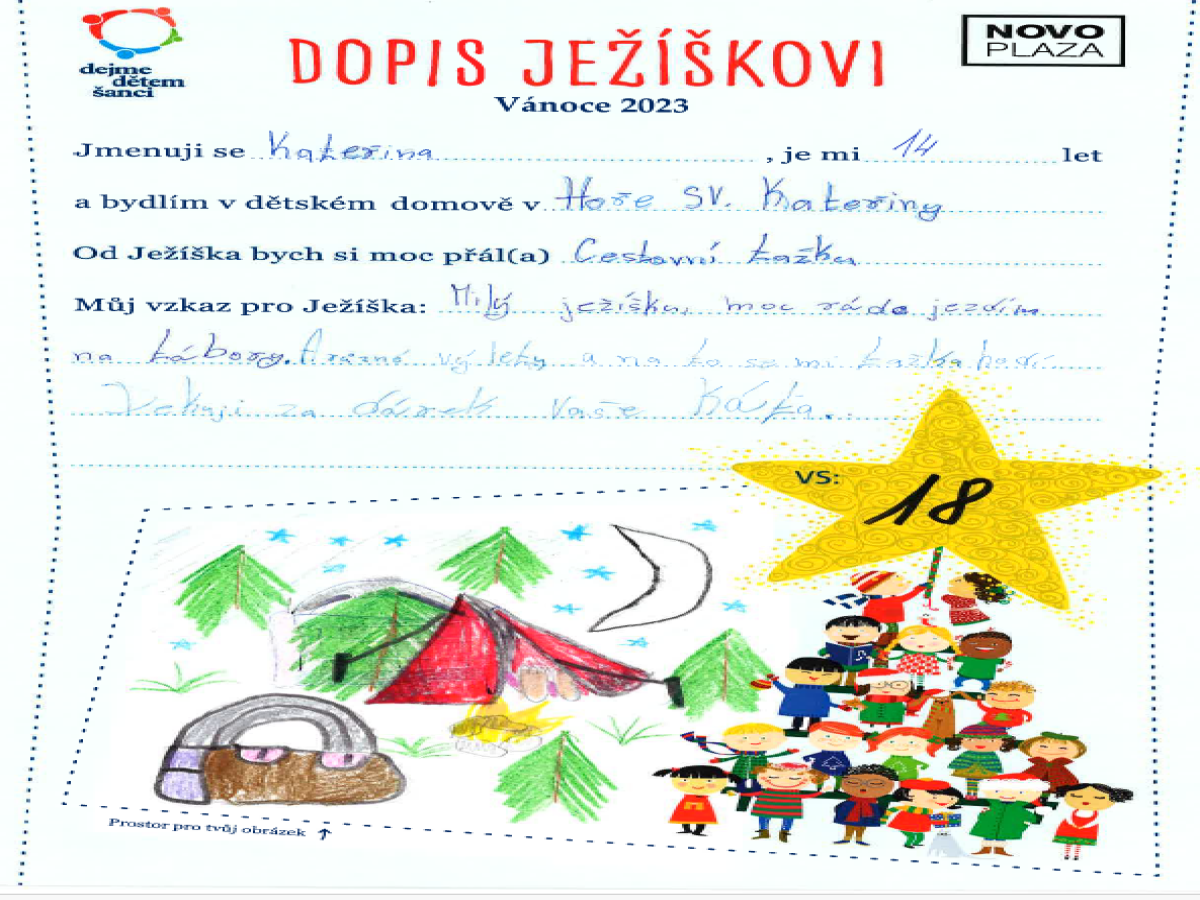 dejme
dětem
šanci
DOPIS JEŽÍŠKOVI
NOVO
PLAZA
Vánoce 2023
Jmenuji se Kateřina, je mi 14 let
a bydlím v dětském domově v Hoře SV. Kateřiny
Od Ježíška bych si moc přál(a) Cestovní tašku
Můj vzkaz pro Ježíška: Milý ježíšku, moc ráda jezdím
na tábory. A různé výlety a na to se mi taška hodí
Děkuji za dárek Vaše Káťa.
VS:
18
Prostor pro tvůj obrázek ↑